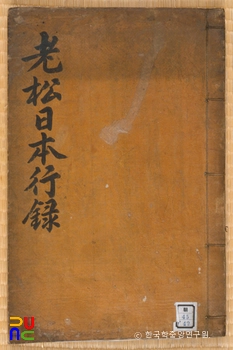 老松日本行録
ⓒ 한국학중앙연구원